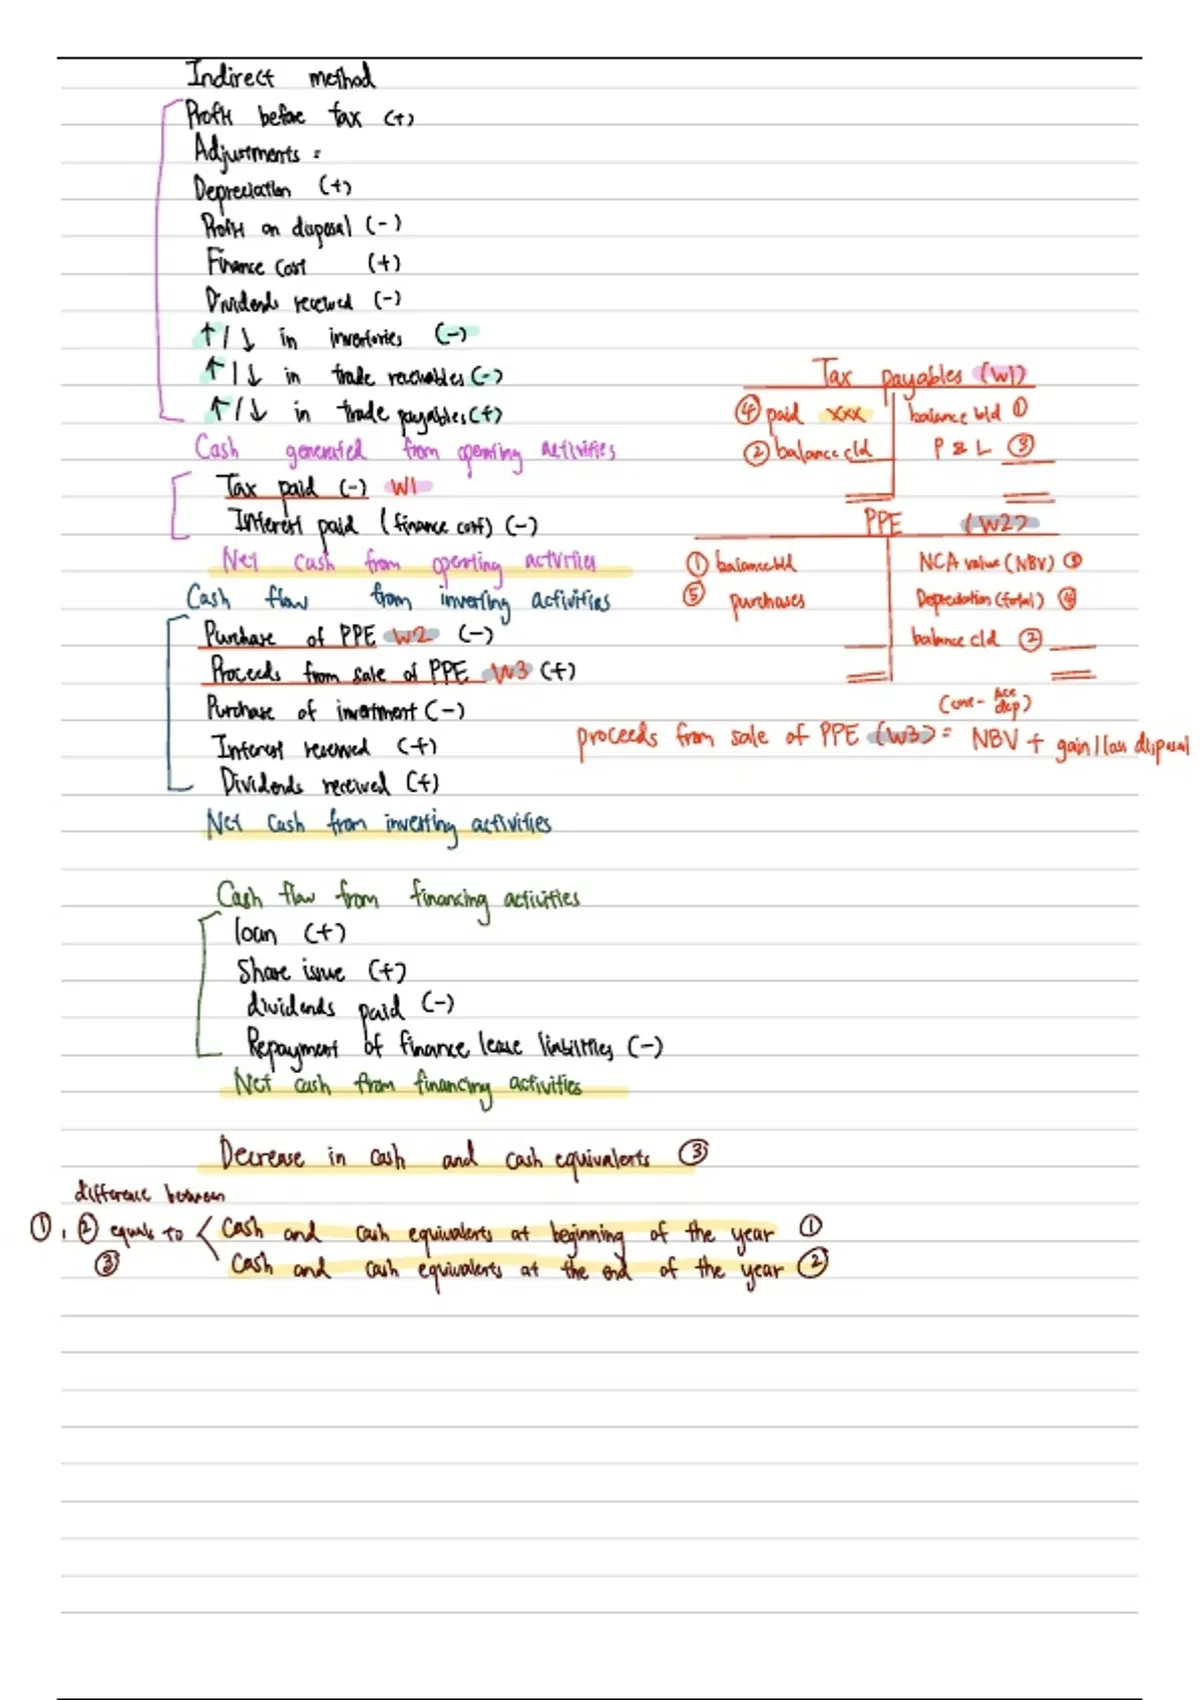 Indirect method
Profit before tax (+)
Adjustments :
Depreciation (+)
Profit on disposal (-)
Finance cost (+)
Dividends received (-)
↑/↓ in inventories (-)
↑/↓ in trade receivables (-)
↑/↓ in trade payables (+)
Cash generated from operating activities
Tax paid (-) W1
Interest paid (finance cost) (-)
Net cash from operating activities
Cash flow from investing activities
Purchase of PPE W2 (-)
Proceeds from sale of PPE W3 (+)
Purchase of investment (-)
Interest received (+)
Dividends received (+)
Net cash from investing activities
Tax payables (W1)
④ paid xxx balance b/d ①
② balance c/d P & L ③
PPE (W2)
① balance b/d NCA value (NBV) ③
⑤ purchases Depreciation (total) ④
balance c/d ②
(cost - Acc dep)
proceeds from sale of PPE (W3) = NBV + gain/loss disposal
Cash flow from financing activities
loan (+)
Share issue (+)
dividends paid (-)
Repayment of finance lease liabilities (-)
Net cash from financing activities
Decrease in cash and cash equivalents ③
difference between
①, ② equals to < Cash and cash equivalents at beginning of the year ①
③ Cash and cash equivalents at the end of the year ②